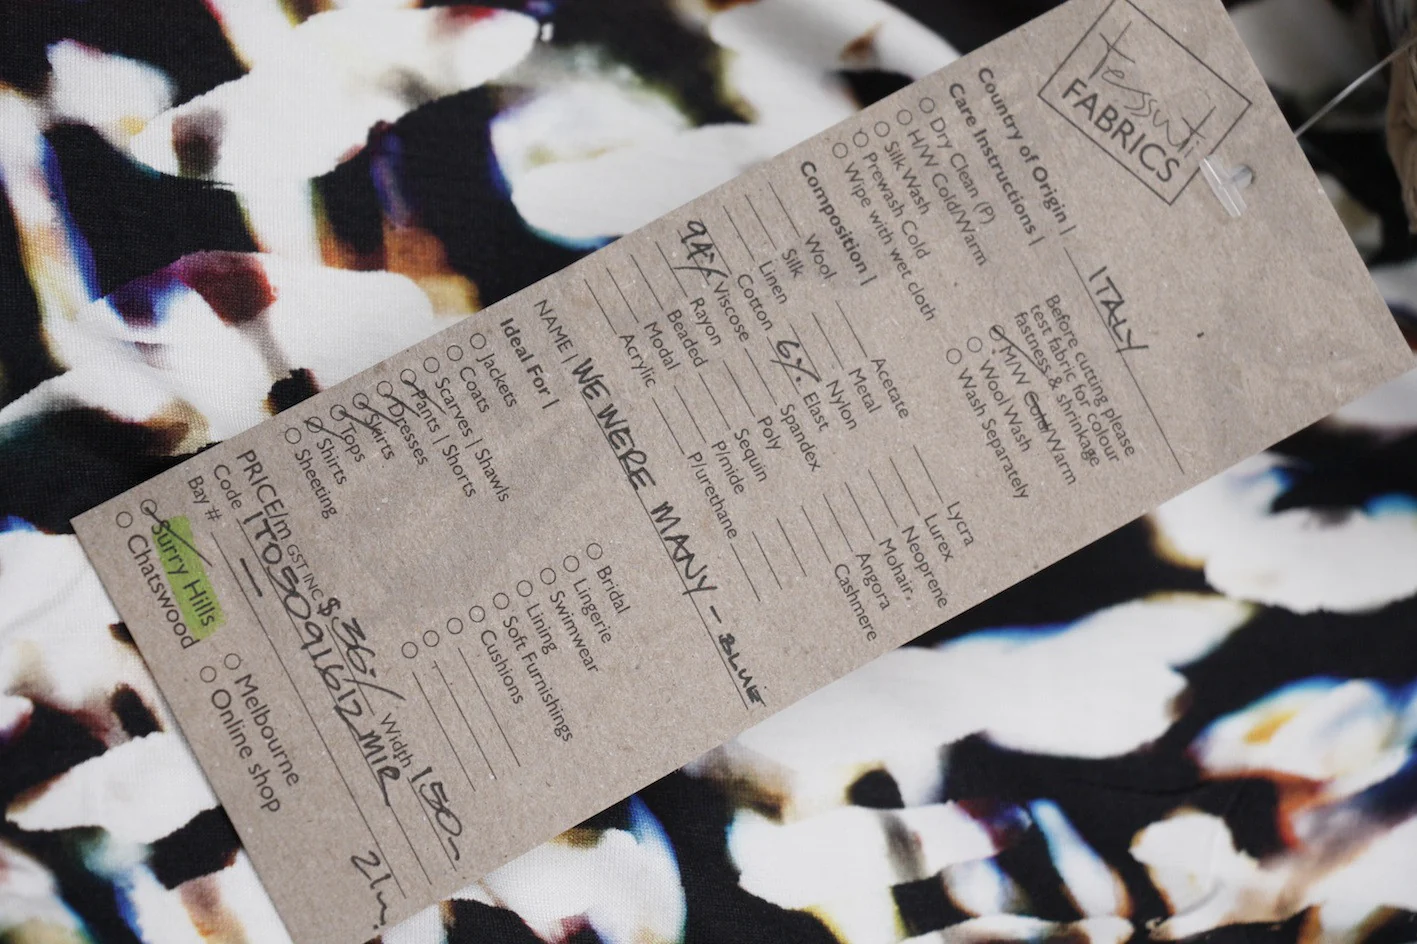 Tessuti
FABRICS
Country of Origin | ITALY
Care Instructions |
Dry Clean (P)
H/W Cold/Warm
Silk Wash
Prewash Cold
Wipe with wet cloth
Before cutting please
test fabric for colour
fastness & shrinkage
M/W Cold/Warm
Wool Wash
Wash Separately
Composition |
Wool
Silk
Linen
Cotton
94% Viscose
Rayon
Beaded
Modal
Acrylic
Acetate
Metal
Nylon
6% Elast
Spandex
Poly
Sequin
P/mide
P/urethane
Lycra
Lurex
Neoprene
Mohair
Angora
Cashmere
NAME | WE WERE MANY - BLUE
Ideal For |
Jackets
Coats
Scarves | Shawls
Pants | Shorts
Dresses
Skirts
Tops
Shirts
Sheeting
Bridal
Lingerie
Swimwear
Lining
Soft Furnishings
Cushions
PRICE/m GST INC $36/ Width 150-
Code ITO3091612MIR
Bay # 
Surry Hills
Chatswood
Melbourne
Online shop